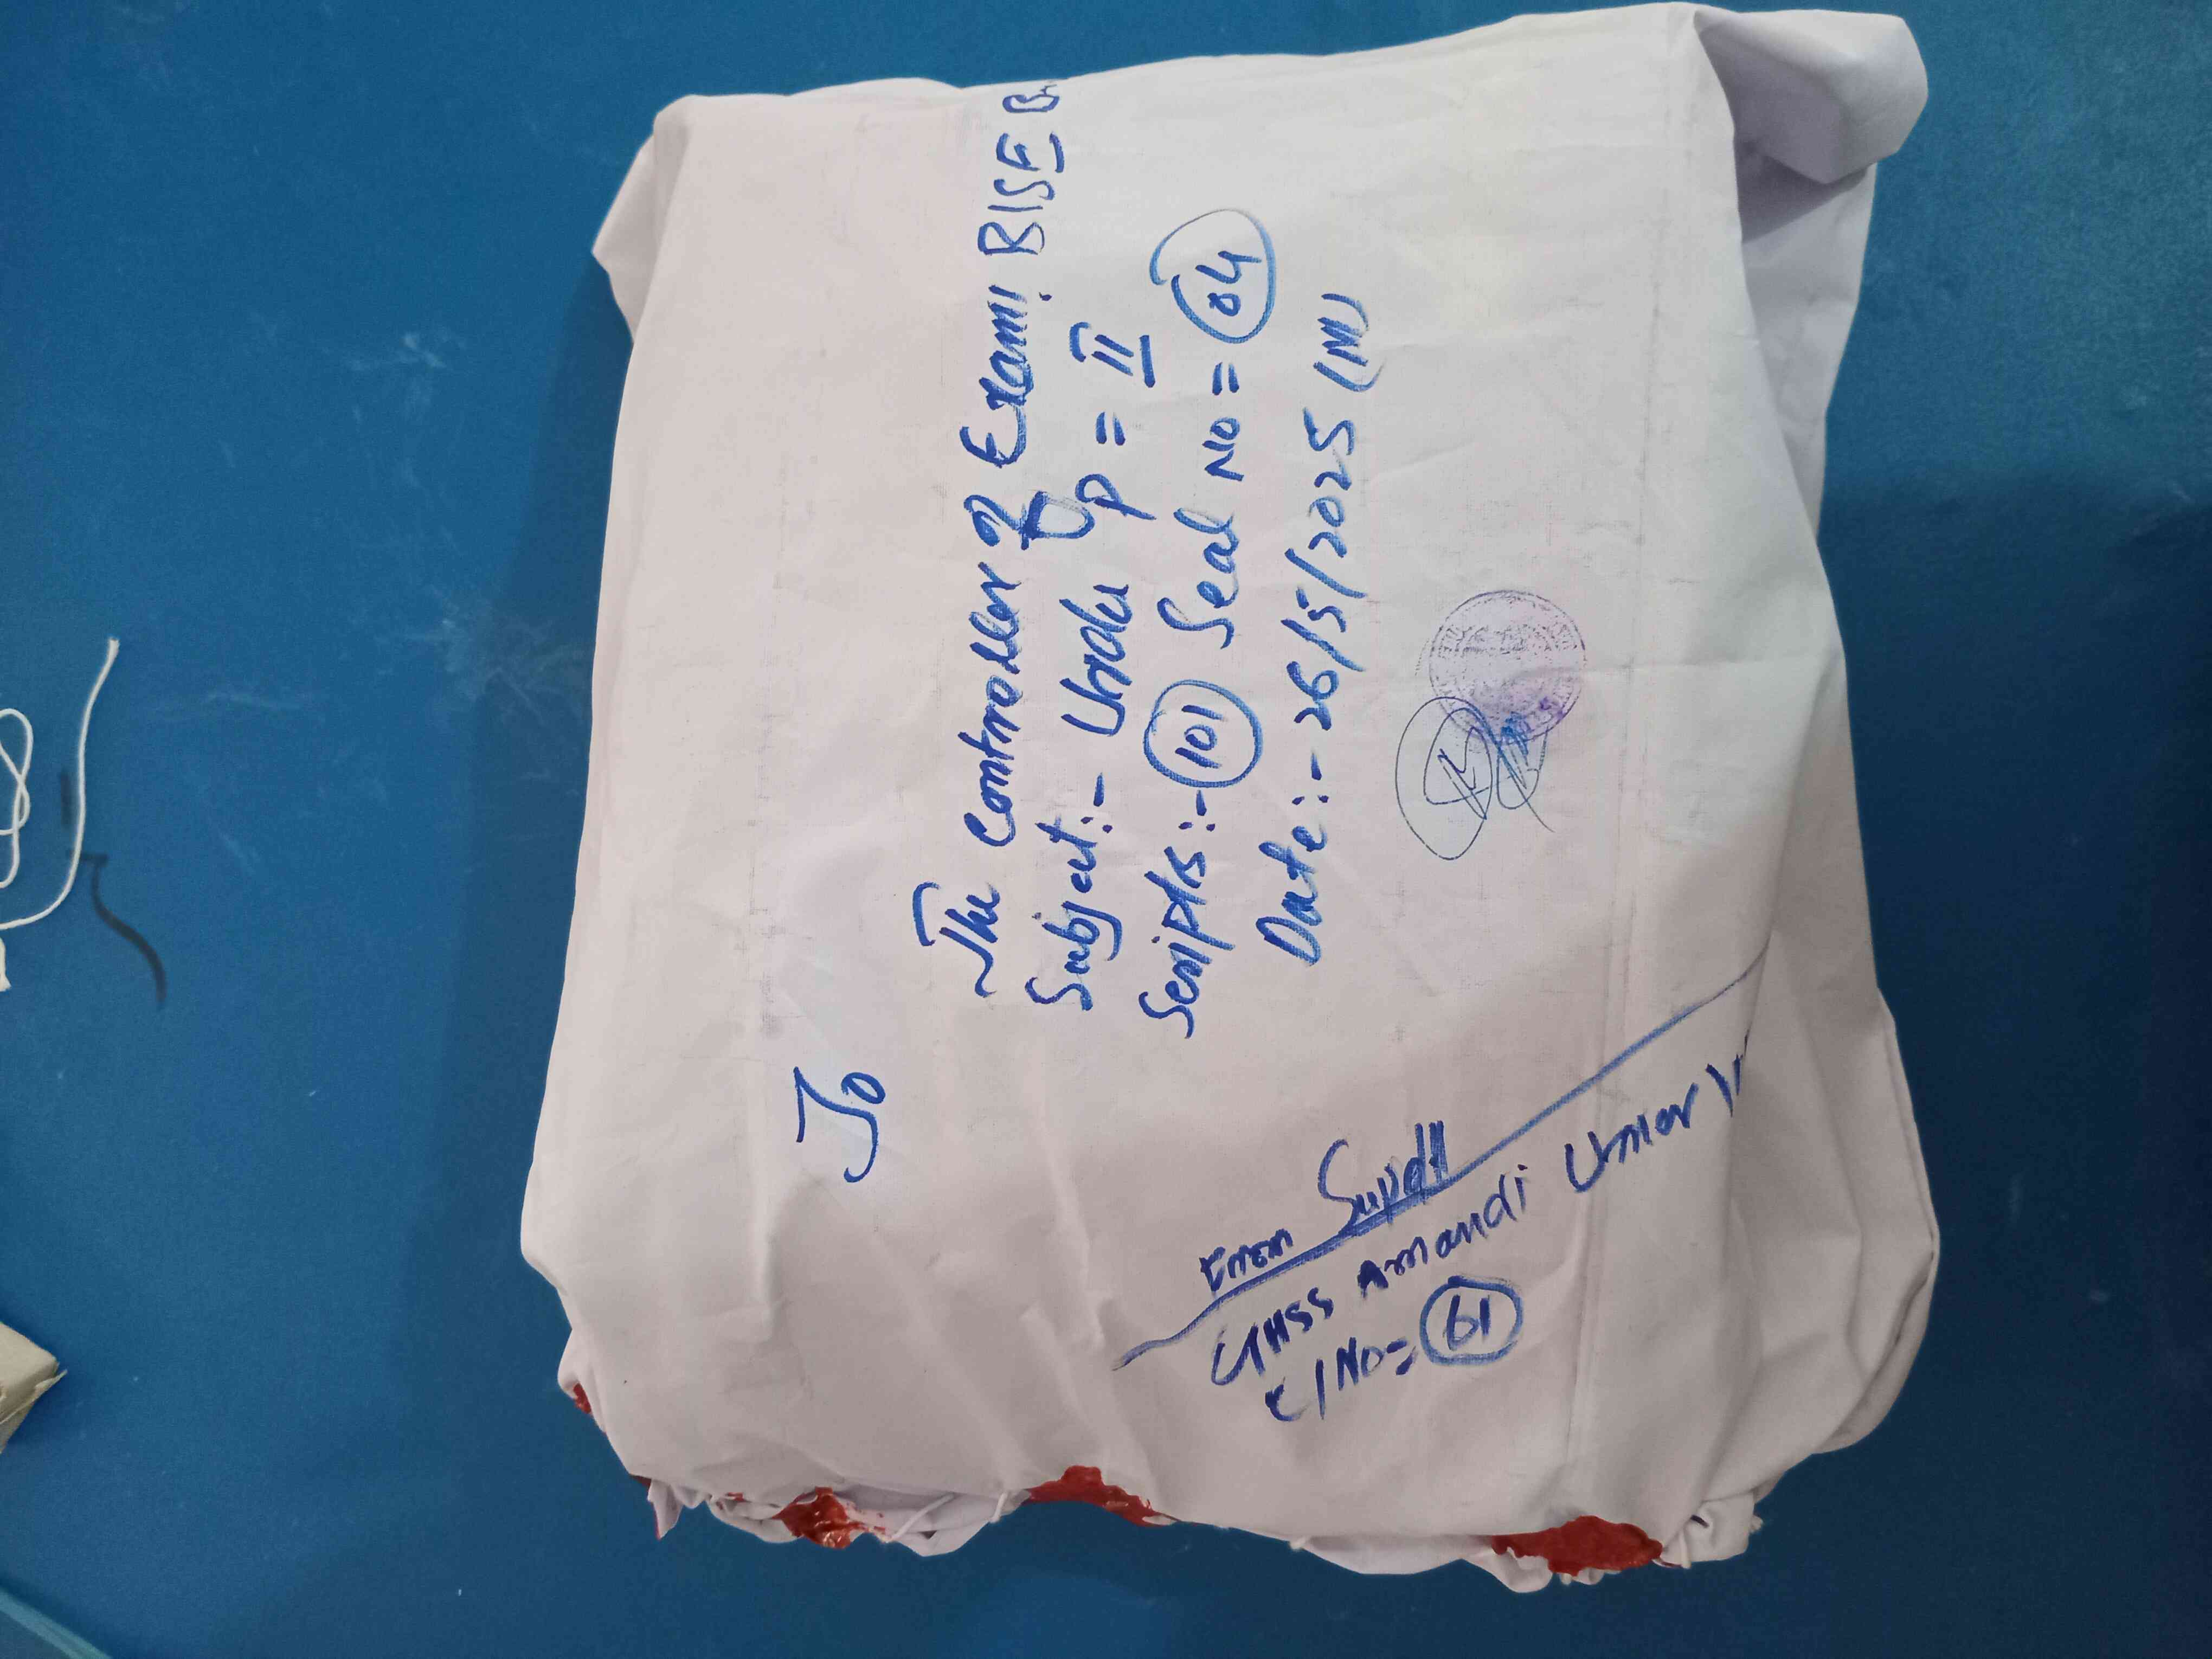 To
The Controller of Exami: BISE
Subject:- Urdu P = II
Scripts:- 101 Seal No = 04
Date:- 26/5/2025 (M)
From Supdtt
GHSS Amandi Umer
C/No= 61